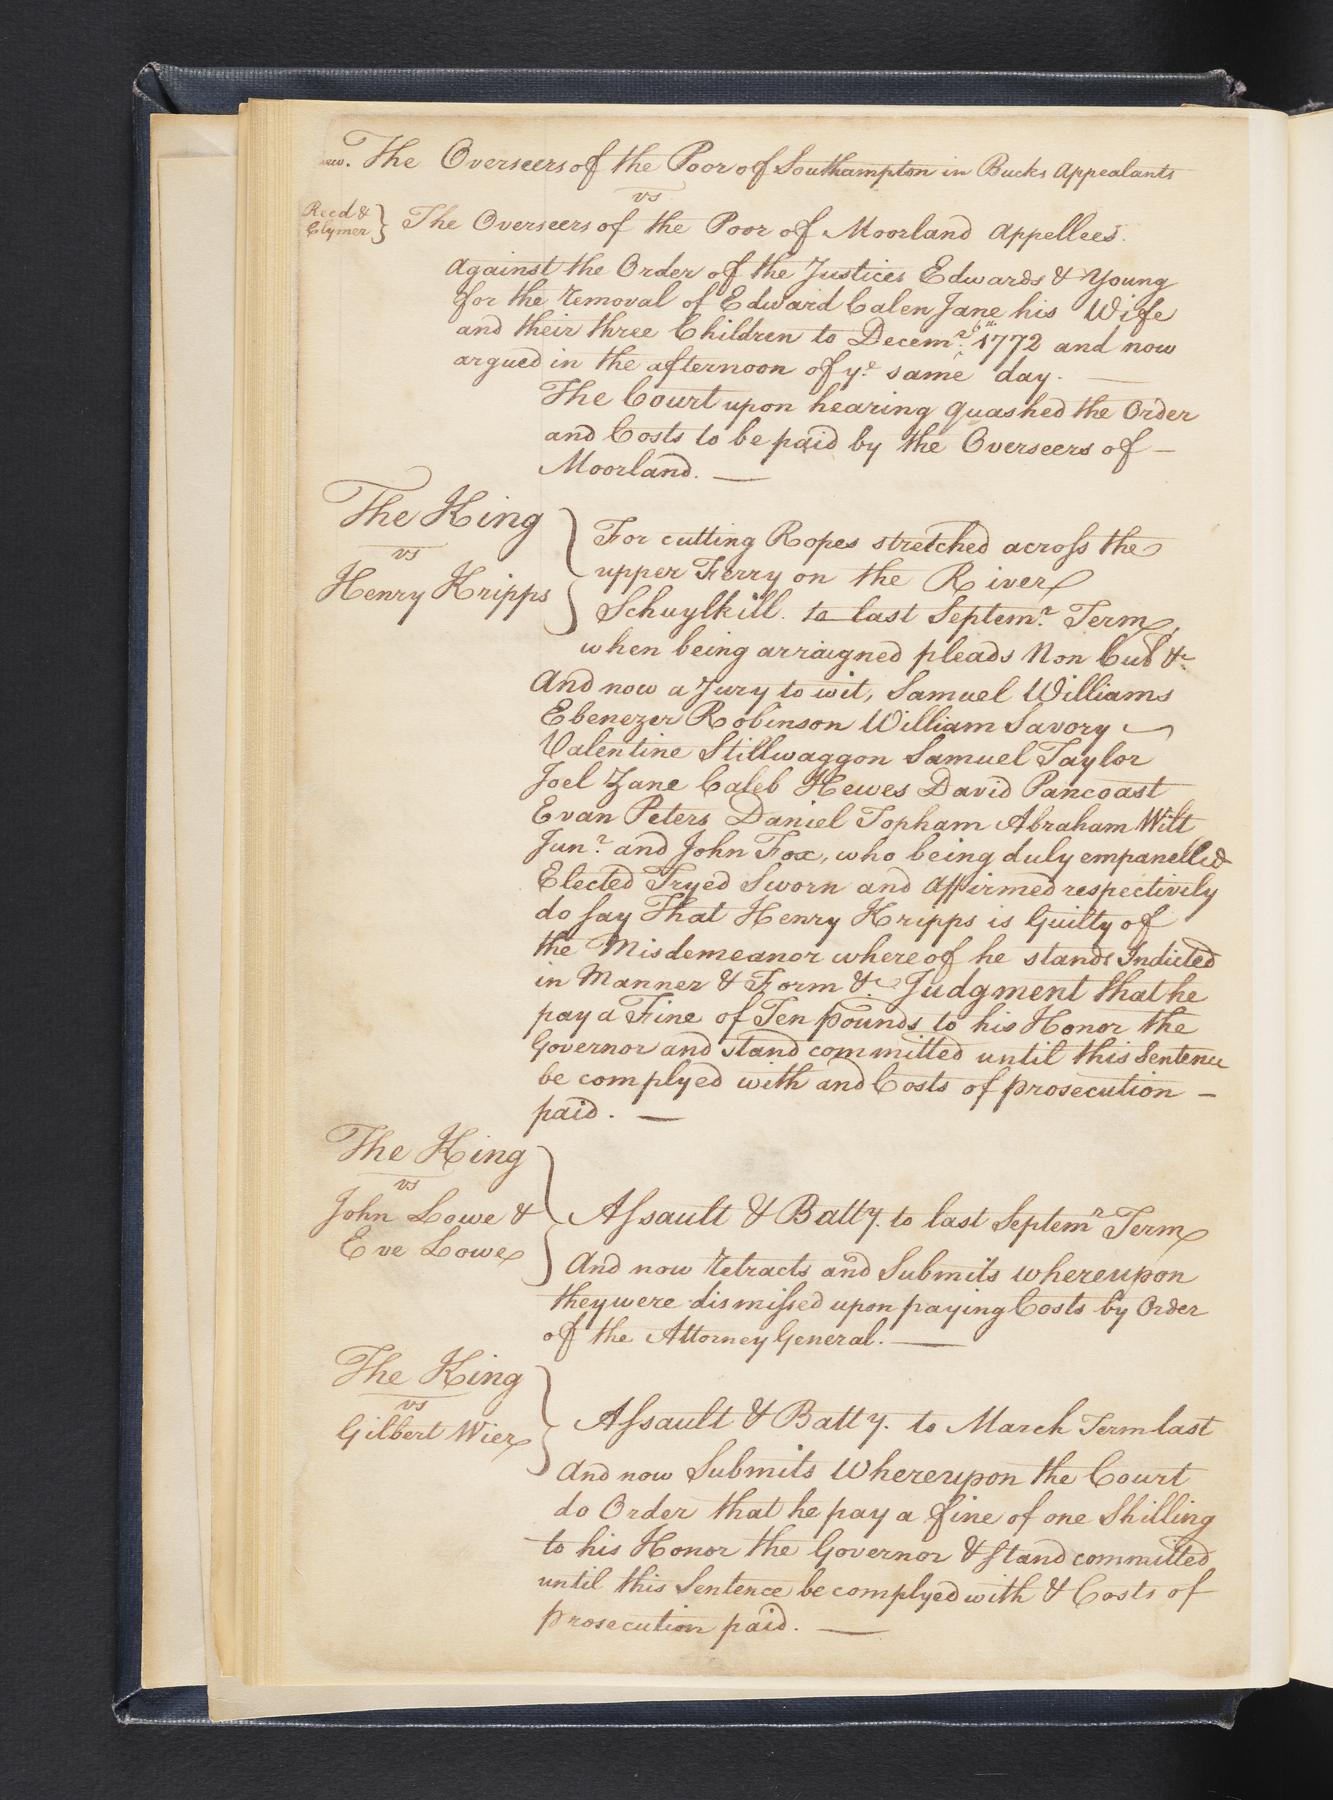 The Overseers of the Poor of Southampton in Bucks Appealants
vs
Reed &
Clymer } The Overseers of the Poor of Moorland Appellees.
Against the Order of the Justices Edwards & Young
for the removal of Edward Calen Jane his Wife
and their three Children to Decemr. 6th 1772 and now
argued in the afternoon of ye. same day.
The Court upon hearing quashed the Order
and Costs to be paid by the Overseers of —
Moorland. —
The King
vs
Henry Kripps
For cutting Ropes stretched across the
upper Ferry on the River
Schuylkill. to last Septemr. Term,
when being arraigned pleads Non Cul &c.
And now a Jury to wit, Samuel Williams
Ebenezer Robinson William Savory
Valentine Stillwaggon Samuel Taylor
Joel Zane Caleb Hewes David Pancoast
Evan Peters Daniel Topham Abraham Wilt
Junr. and John Fox, who being duly empanelled
Elected Tryed Sworn and Affirmed respectively
do say That Henry Kripps is Guilty of
the Misdemeanor whereof he stands Indicted
in Manner & Form &c. Judgment that he
pay a Fine of Ten Pounds to his Honor the
Governor and stand committed until this Sentence
be complyed with and Costs of prosecution —
paid. —
The King
vs
John Lowe &
Eve Lowe
Assault & Batty. to last Septemr Term
And now retracts and Submits whereupon
they were dismissed upon paying Costs by Order
of the Attorney General. —
The King
vs
Gilbert Wier
Assault & Batty. to March Term last
And now Submits Whereupon the Court
do Order that he pay a fine of one Shilling
to his Honor the Governor & stand committed
until this Sentence be complyed with & Costs of
prosecution paid. —